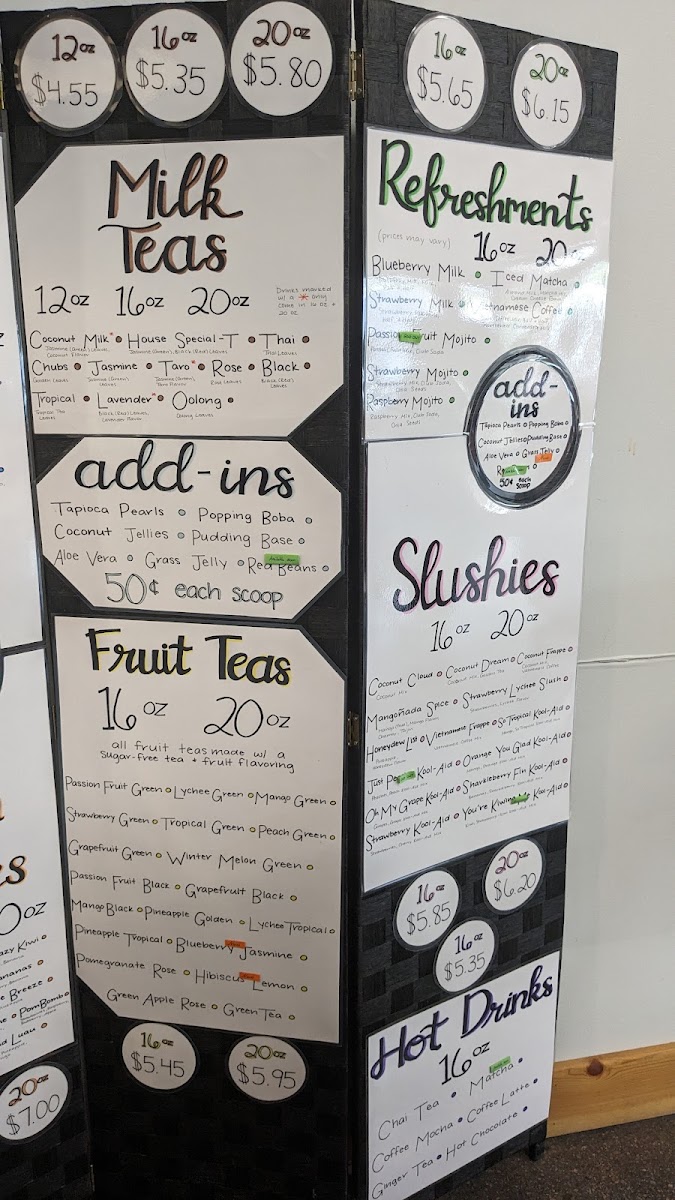 12oz $4.55
16oz $5.35
20oz $5.80
Milk
Teas
12oz 16oz 20oz
Drinks marked
w/ a * only
come in 16 oz +
20 oz
Coconut Milk* • House Special-T • Thai •
Chubs • Jasmine • Taro* • Rose • Black •
Tropical • Lavender* • Oolong •
add-ins
Tapioca Pearls • Popping Boba •
Coconut Jellies • Pudding Base •
Aloe Vera • Grass Jelly • Red Beans •
50¢ each scoop
Fruit Teas
16oz 20oz
all fruit teas made w/ a
sugar-free tea + fruit flavoring
Passion Fruit Green • Lychee Green • Mango Green •
Strawberry Green • Tropical Green • Peach Green •
Grapefruit Green • Winter Melon Green •
Passion Fruit Black • Grapefruit Black •
Mango Black • Pineapple Golden • Lychee Tropical •
Pineapple Tropical • Blueberry Jasmine •
Pomegranate Rose • Hibiscus Lemon •
Green Apple Rose • Green Tea •
16oz $5.45
20oz $5.95
20oz
$7.00
16oz $5.65
20oz $6.15
Refreshments
(prices may vary)
16oz 20oz
Blueberry Milk • Iced Matcha •
Strawberry Milk • Vietnamese Coffee •
Passion Fruit Mojito •
Strawberry Mojito •
Raspberry Mojito •
add-
ins
Tapioca Pearls • Popping Boba •
Coconut Jellies • Pudding Base •
Aloe Vera • Grass Jelly •
50¢ each
scoop
Slushies
16oz 20oz
Coconut Cloud • Coconut Dream • Coconut Frappe •
Mangoñada Spice • Strawberry Lychee Slush •
Honeydew List • Vietnamese Frappe • So Tropical Kool-Aid •
Just Kool-Aid • Orange You Glad Kool-Aid •
Oh My Grape Kool-Aid • Sharkleberry Fin Kool-Aid •
Strawberry Kool-Aid • You're Kiwin Kool-Aid •
16oz $5.85
20oz $6.20
16oz $5.35
Hot Drinks
16oz
Chai Tea • Matcha •
Coffee Mocha • Coffee Latte •
Ginger Tea • Hot Chocolate •